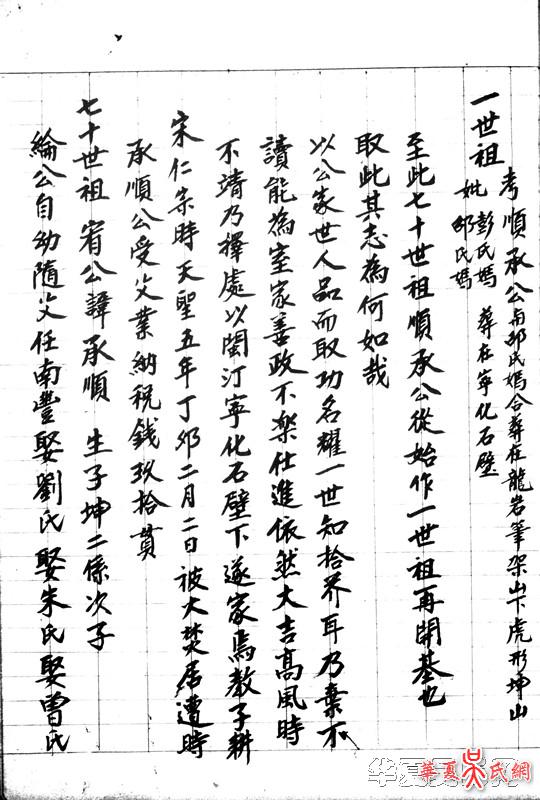 一世祖
考順承公与邱氏媽合葬在龍岩筆架山下虎形坤山
妣彭氏媽 葬在寧化石壁
邱氏媽
至此七十世祖順承公從始作一世祖再開基也
取此其志為何如哉
以公家世人品而取功名耀一世知拾芥耳乃棄不
讀能為室家善政不樂仕進依然大吉高風時
不靖乃擇處以閩汀寧化石壁下遂家焉教子耕
宋仁宗時天聖五年丁卯二月二日被大焚居遭時
承順公受父業納税錢玖拾貫
七十世祖宥公諱承順 生子坤二係次子
綸公自幼隨父任南豐娶劉氏娶朱氏娶曾氏
華夏吴氏網